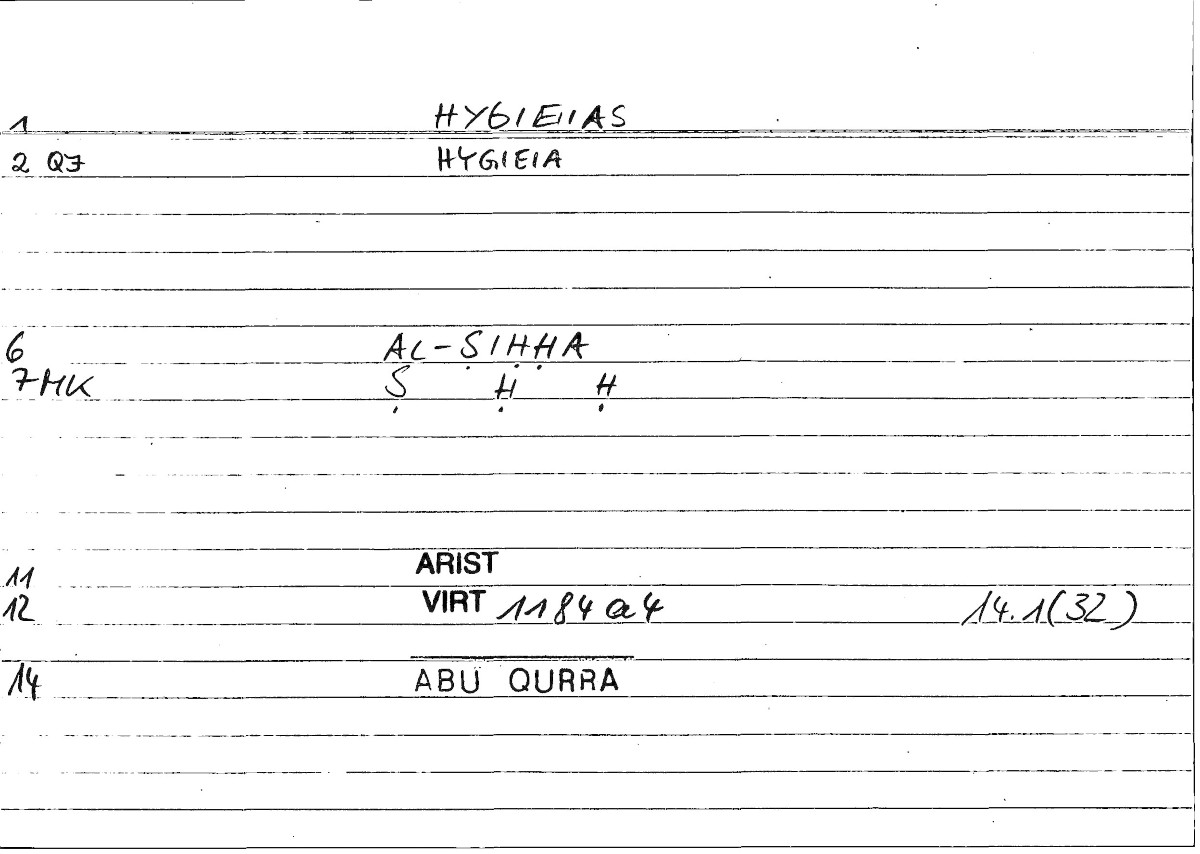 1 HYGIEIAS
2 QJ HYGIEIA
6 AL-ṢIḤḤA
7 MK Ṣ Ḥ Ḥ
11 ARIST
12 VIRT 1184a4 14.1(32)
14 ABU QURRA